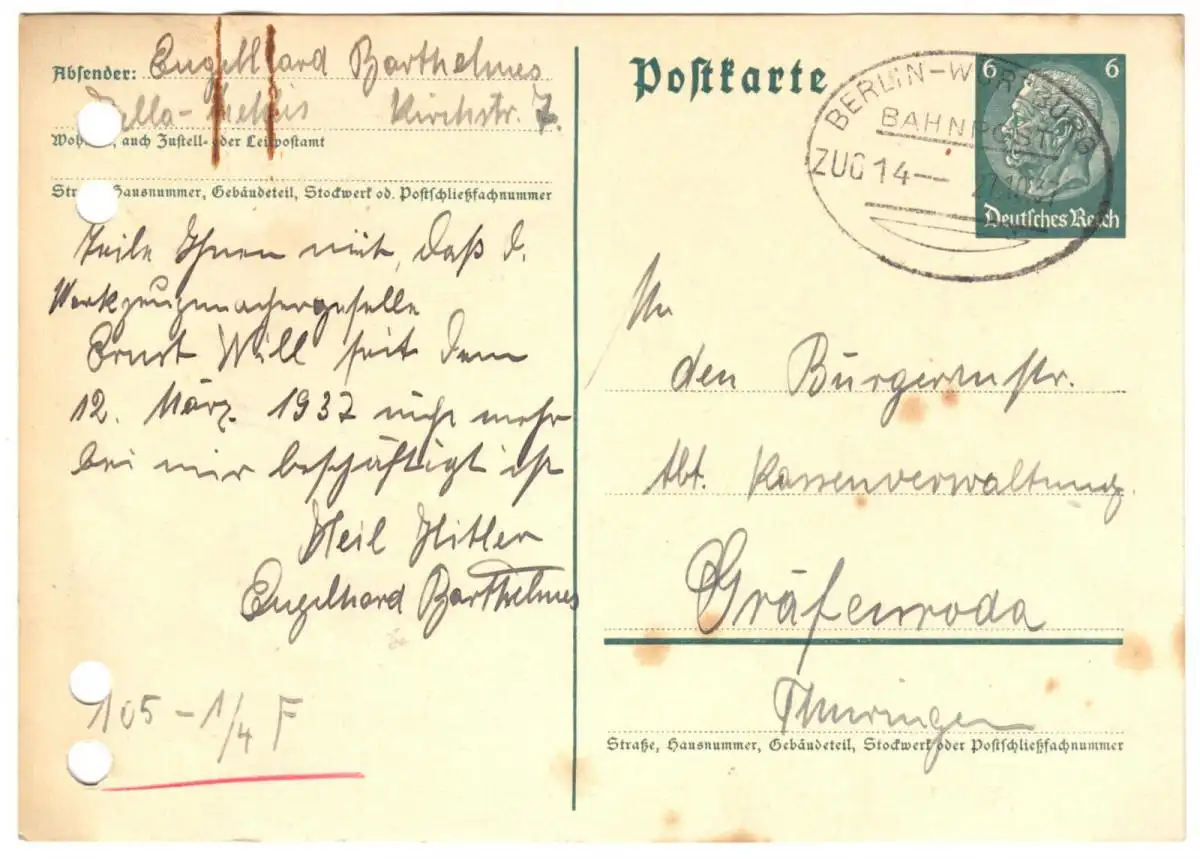 Absender: Engelhard Barthelmes
Zella-Mehlis Kirchstr. 7.
Wohnort, auch Zustell- oder Leitpostamt
Straße, Hausnummer, Gebäudeteil, Stockwerk od. Postschließfachnummer
Teile Ihnen mit, daß d.
Werkzeugmachergeselle
Ernst Will seit dem
12. März 1937 nicht mehr
bei mir beschäftigt ist
Heil Hitler
Engelhard Barthelmes
105 - 1/4 F
Postkarte
BERLIN-WÜRZBURG
BAHNPOST
ZUG 14 27.10.37
6 6
Deutsches Reich
An
den Bürgermstr.
Abt. Kassenverwaltung.
Gräfenroda
Thüringen
Straße, Hausnummer, Gebäudeteil, Stockwerk oder Postschließfachnummer